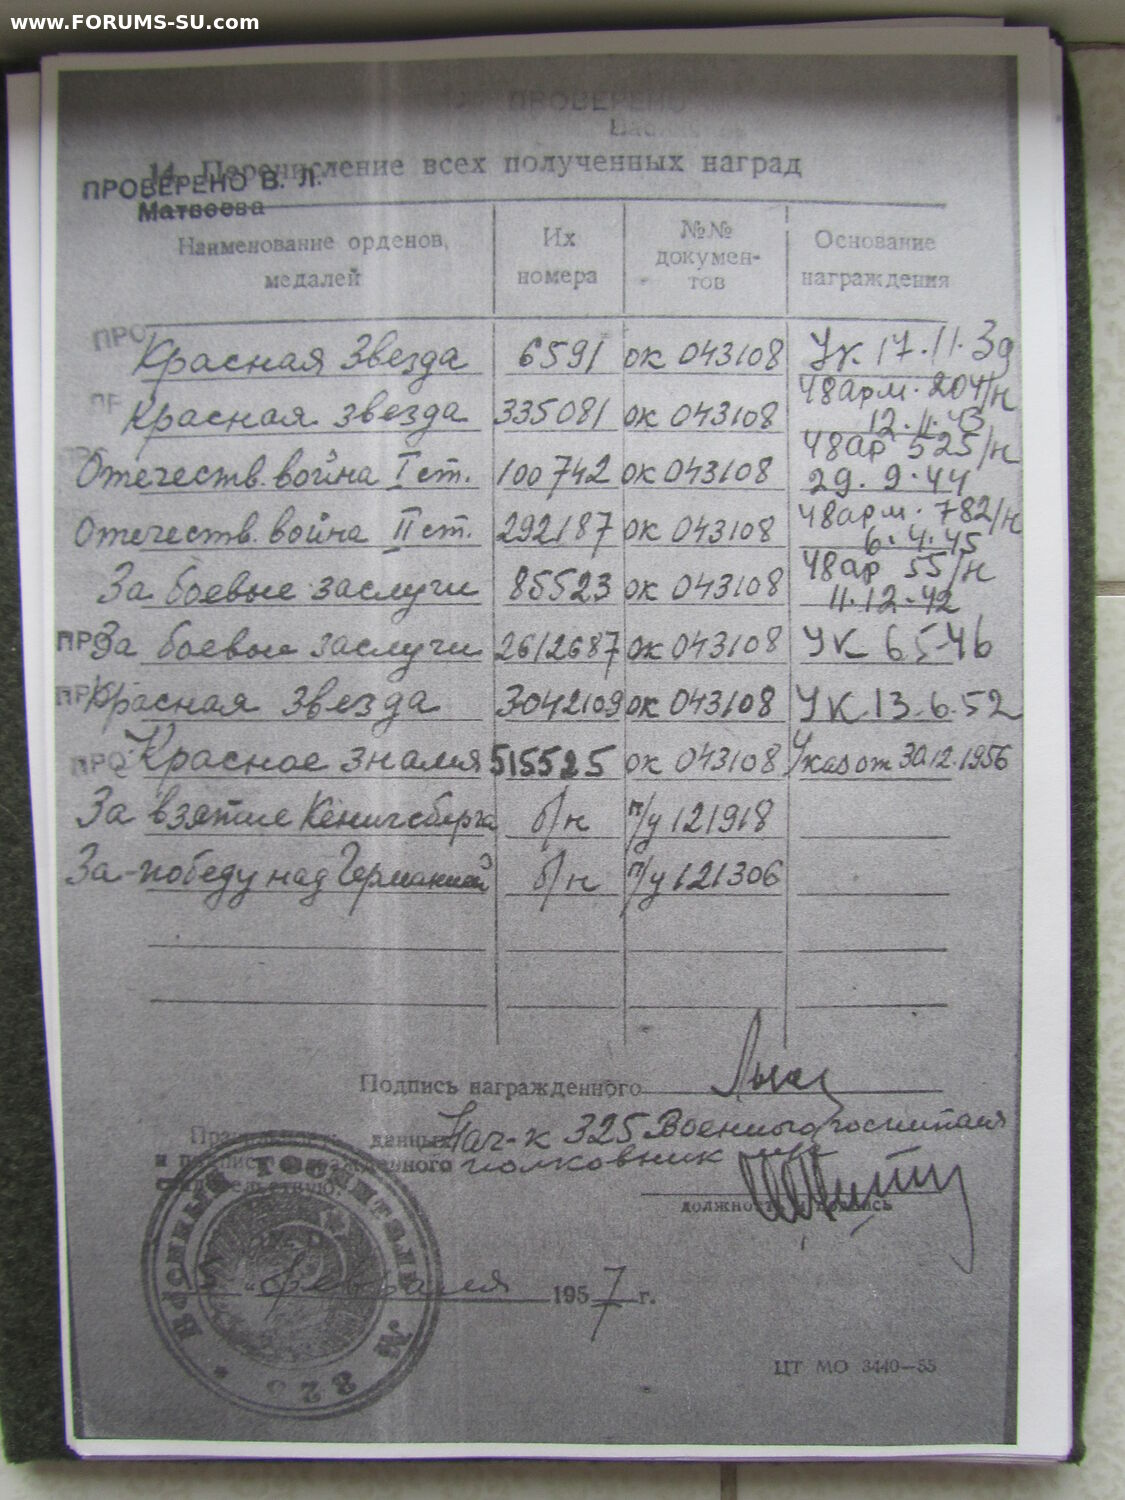 www.FORUMS-SU.com
ПРОВЕРЕНО
14. Перечисление всех полученных наград
ПРОВЕРЕНО В. Л.
Матвеева
Наименование орденов, медалей
Их номера
№№ докумен-тов
Основание награждения
ПРО
Красная Звезда 6591 ок 043108 Ук 17.11.39
ПР
Красная звезда 335081 ок 043108 48арм. 204/н 12.11.43
Отечеств. война I ст. 100742 ок 043108 48ар 525/н 29.9.44
Отечеств. война II ст. 292187 ок 043108 48арм. 782/н 6.4.45
За боевые заслуги 85523 ок 043108 48ар 55/н 11.12.42
ПРО
За боевые заслуги 2612687 ок 043108 УК 65-46
ПР
Красная Звезда 3042109 ок 043108 УК.13.6.52
ПРО
Красное знамя 515525 ок 043108 Указ от 30.12.1956
За взятие Кенигсберга б/н п/у 121918
За победу над Германией б/н п/у 121306
Подпись награжденного
данных Нач-к 325 Военного госпиталя
награжденного полковник м/с
должность и подпись
февраля 1957 г.
Военный госпиталь № 325
ЦТ МО 3440—55